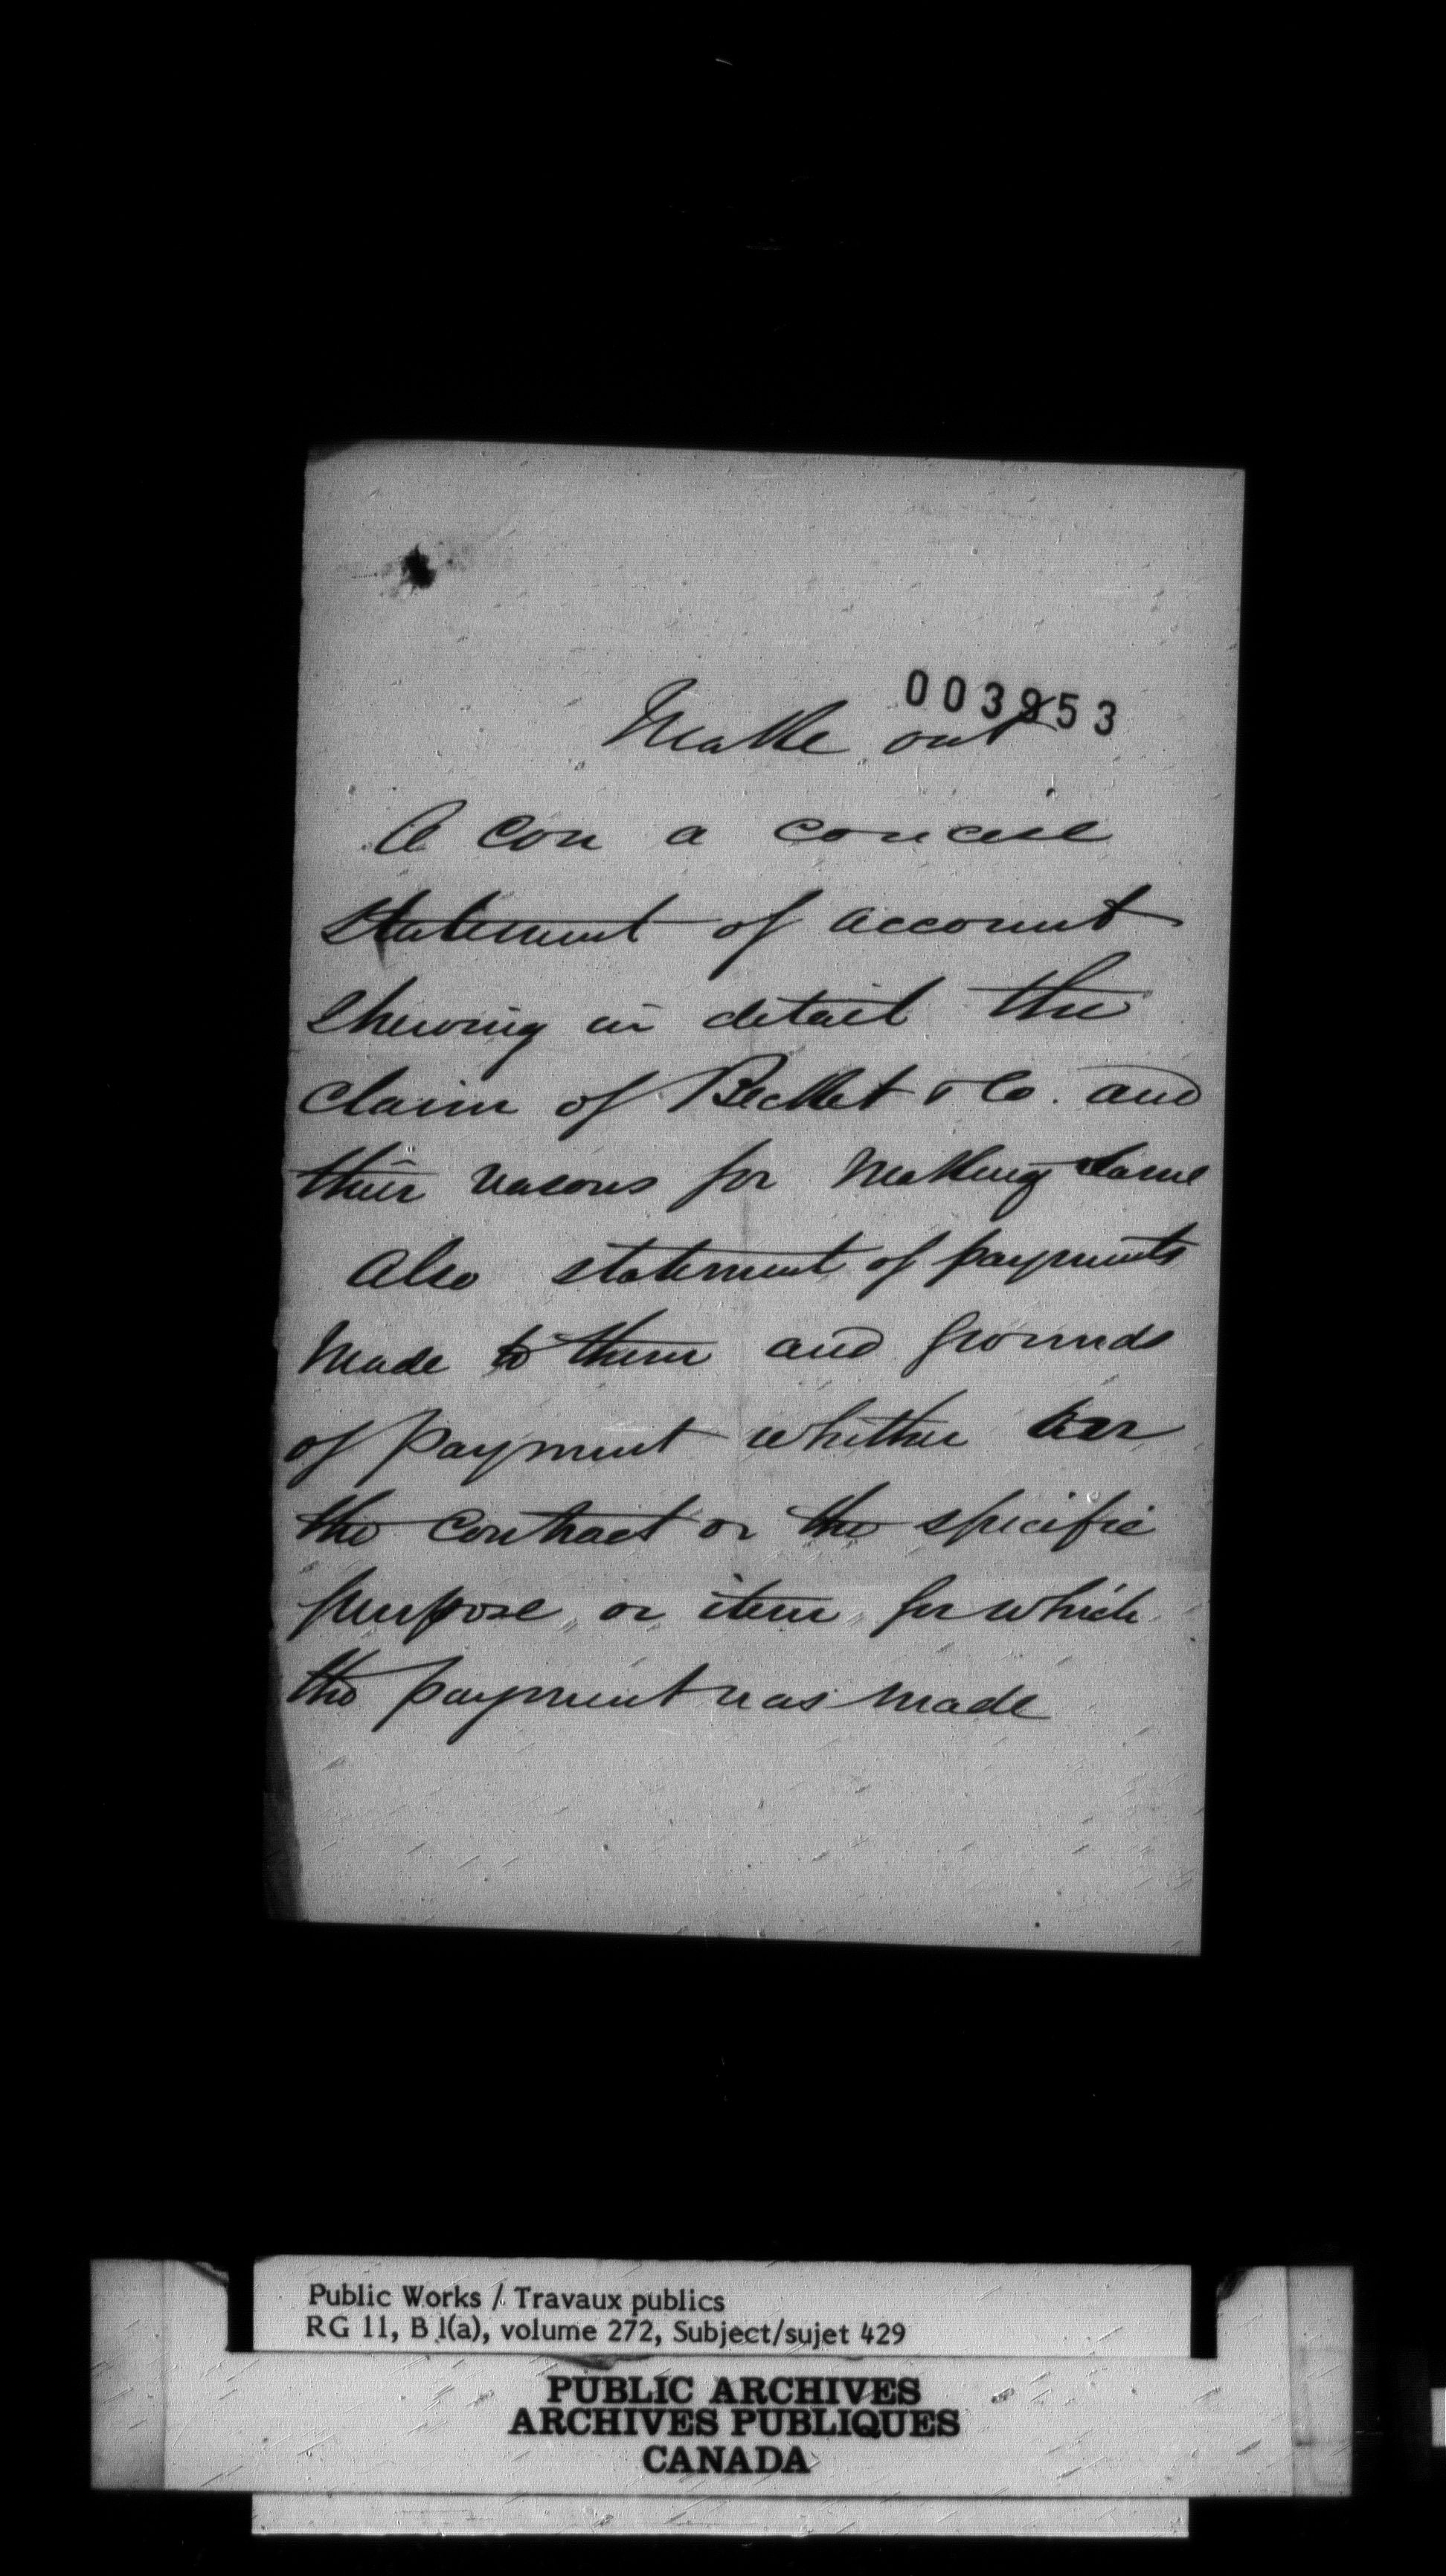 003953
Make out
A con a concise
statement of account
shewing in detail the
claim of Becket & Co. and
their reasons for making same
Also statement of payments
made to them and grounds
of payment whether
the contract or the specific
purpose or item for which
the payment was made
Public Works / Travaux publics
RG 11, B 1(a), volume 272, Subject/sujet 429
PUBLIC ARCHIVES
ARCHIVES PUBLIQUES
CANADA